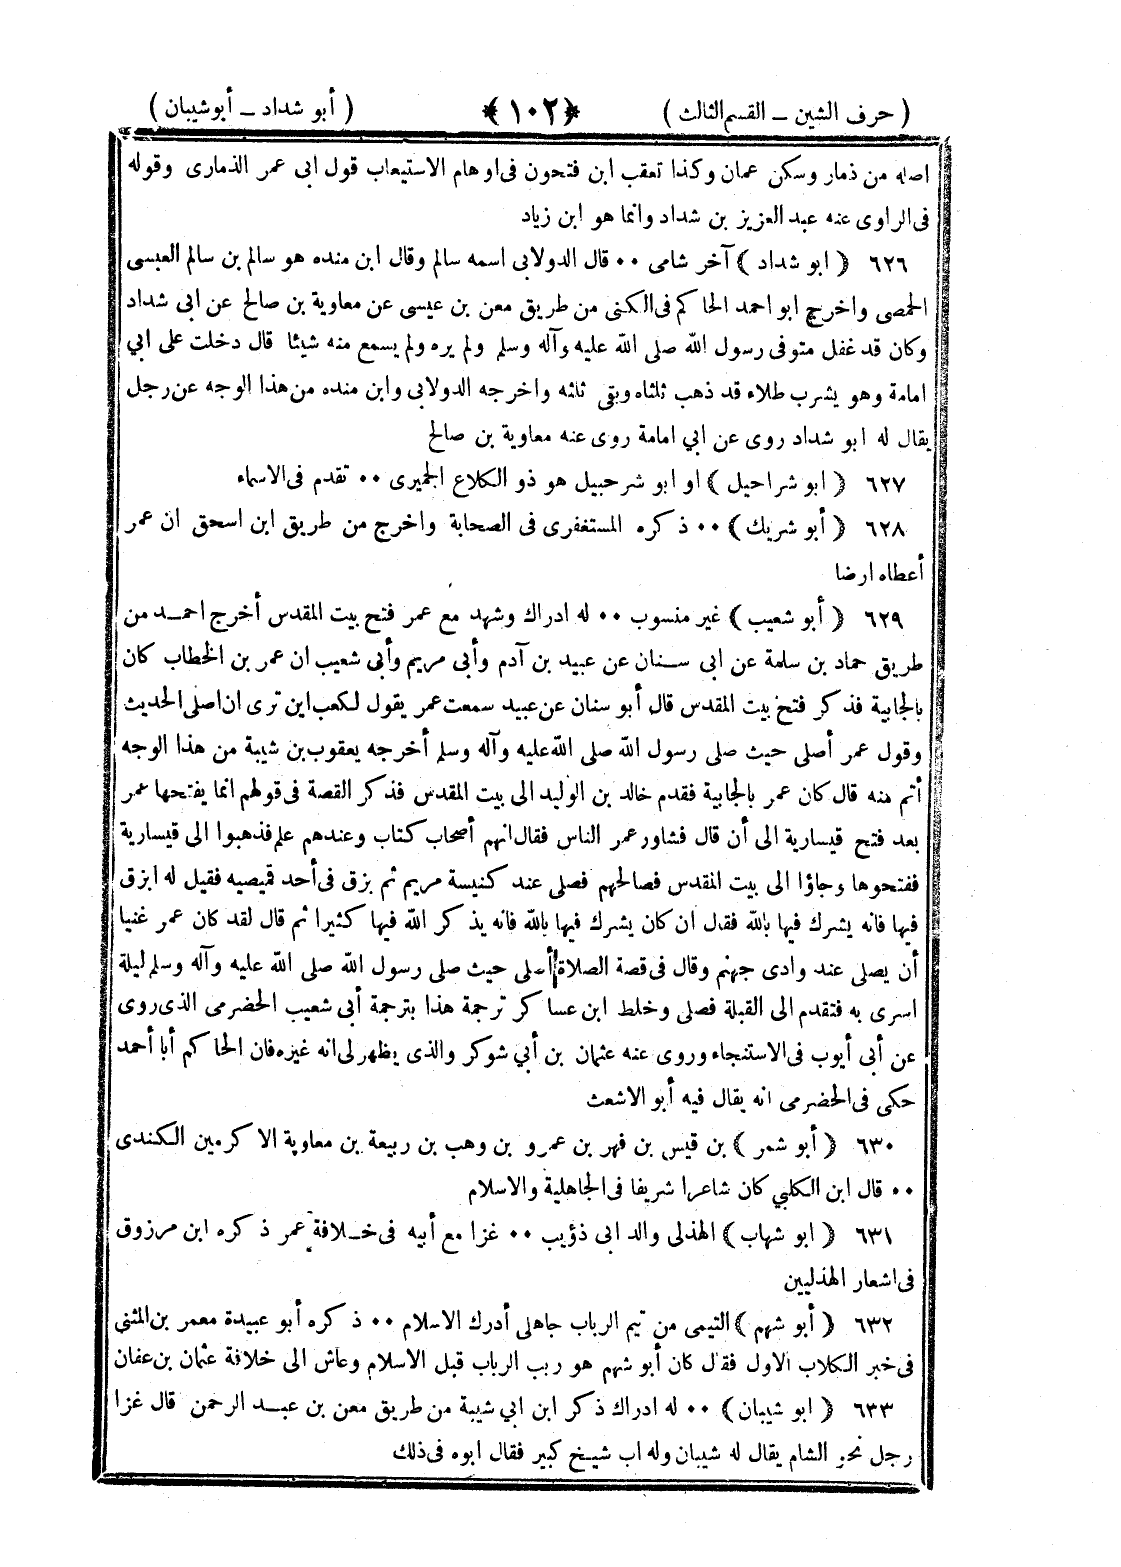 ( حرف الشين ــ القسم الثالث ) ﴿١٠٢﴾ ( أبو شداد ــ أبوشيبان )
اصله من ذمار وسكن عمان وكذا تعقب ابن فتحون فى اوهام الاستيعاب قول ابى عمر الذمارى وقوله
فى الراوى عنه عبد العزيز بن شداد وانما هو ابن زياد
٦٢٦ ( ابو شداد ) آخر شامى ٠٠ قال الدولابى اسمه سالم وقال ابن منده هو سالم بن سالم العبسى
الحمصى واخرج ابو احمد الحاكم فى الكنى من طريق معن بن عيسى عن معاوية بن صالح عن ابى شداد
وكان قد غفل متوفى رسول الله صلى الله عليه وآله وسلم ولم يره ولم يسمع منه شيئا قال دخلت على ابي
امامة وهو يشرب طلاء قد ذهب ثلثاه وبقى ثلثه واخرجه الدولابى وابن منده من هذا الوجه عن رجل
يقال له ابو شداد روى عن ابي امامة روى عنه معاوية بن صالح
٦٢٧ ( ابو شراحيل ) او ابو شرحبيل هو ذو الكلاع الحميرى ٠٠ تقدم فى الاسماء
٦٢٨ ( أبو شريك ) ٠٠ ذكره المستغفرى فى الصحابة واخرج من طريق ابن اسحق ان عمر
أعطاه ارضا
٦٢٩ ( أبو شعيب ) غير منسوب ٠٠ له ادراك وشهد مع عمر فتح بيت المقدس أخرج احمـد من
طريق حماد بن سلمة عن ابى سـنان عن عبيد بن آدم وأبى مريم وأبى شعيب ان عمر بن الخطاب كان
بالجابية فذكر فتح بيت المقدس قال أبو سنان عن عبيد سمعت عمر يقول لكعب اين ترى ان اصلى الحديث
وقول عمر أصلى حيث صلى رسول الله صلى الله عليه وآله وسلم أخرجه يعقوب بن شيبة من هذا الوجه
أتم منه قال كان عمر بالجابية فقدم خالد بن الوليد الى بيت المقدس فذكر القصة فى قولهم انما يفتحها عمر
بعد فتح قيسارية الى أن قال فشاور عمر الناس فقال انهم أصحاب كتاب وعندهم علم فذهبوا الى قيسارية
ففتحوها وجاؤا الى بيت المقدس فصالحهم فصلى عند كنيسة مريم ثم بزق فى أحد قميصيه فقيل له ابزق
فيها فانه يشرك فيها بالله فقال ان كان يشرك فيها بالله فانه يذكر الله فيها كثيرا ثم قال لقد كان عمر غنيا
أن يصلى عند وادى جهنم وقال فى قصة الصلاة أصلى حيث صلى رسول الله صلى الله عليه وآله وسلم ليلة
اسرى به فتقدم الى القبلة فصلى وخلط ابن عساكر ترجمة هذا بترجمة أبى شعيب الحضرمى الذى روى
عن أبى أيوب فى الاستنجاء وروى عنه عثمان بن أبي شوكر والذى يظهر لى انه غيره فان الحاكم أبا أحمد
حكى فى الحضرمى انه يقال فيه أبو الاشعث
٦٣٠ ( أبو شمر ) بن قيس بن فهر بن عمرو بن وهب بن ربيعة بن معاوية الاكرمين الكندى
٠٠ قال ابن الكلبي كان شاعرا شريفا فى الجاهلية والاسلام
٦٣١ ( ابو شهاب ) الهذلى والد ابى ذؤيب ٠٠ غزا مع أبيه فى خـلافة عمر ذكره ابن مرزوق
فى اشعار الهذليين
٦٣٢ ( أبو شهم ) التيمى من تيم الرباب جاهلى أدرك الاسلام ٠٠ ذكره أبو عبيدة معمر بن المثنى
فى خبر الكلاب الاول فقال كان أبو شهم هو ربب الرباب قبل الاسلام وعاش الى خلافة عثمان بن عفان
٦٣٣ ( ابو شيبان ) ٠٠ له ادراك ذكر ابن ابي شيبة من طريق معن بن عبـد الرحمن قال غزا
رجل نحو الشام يقال له شيبان وله اب شيـخ كبير فقال ابوه فى ذلك